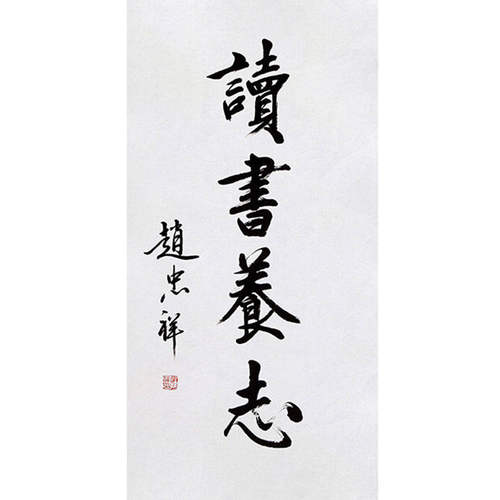 讀書養志
趙忠祥